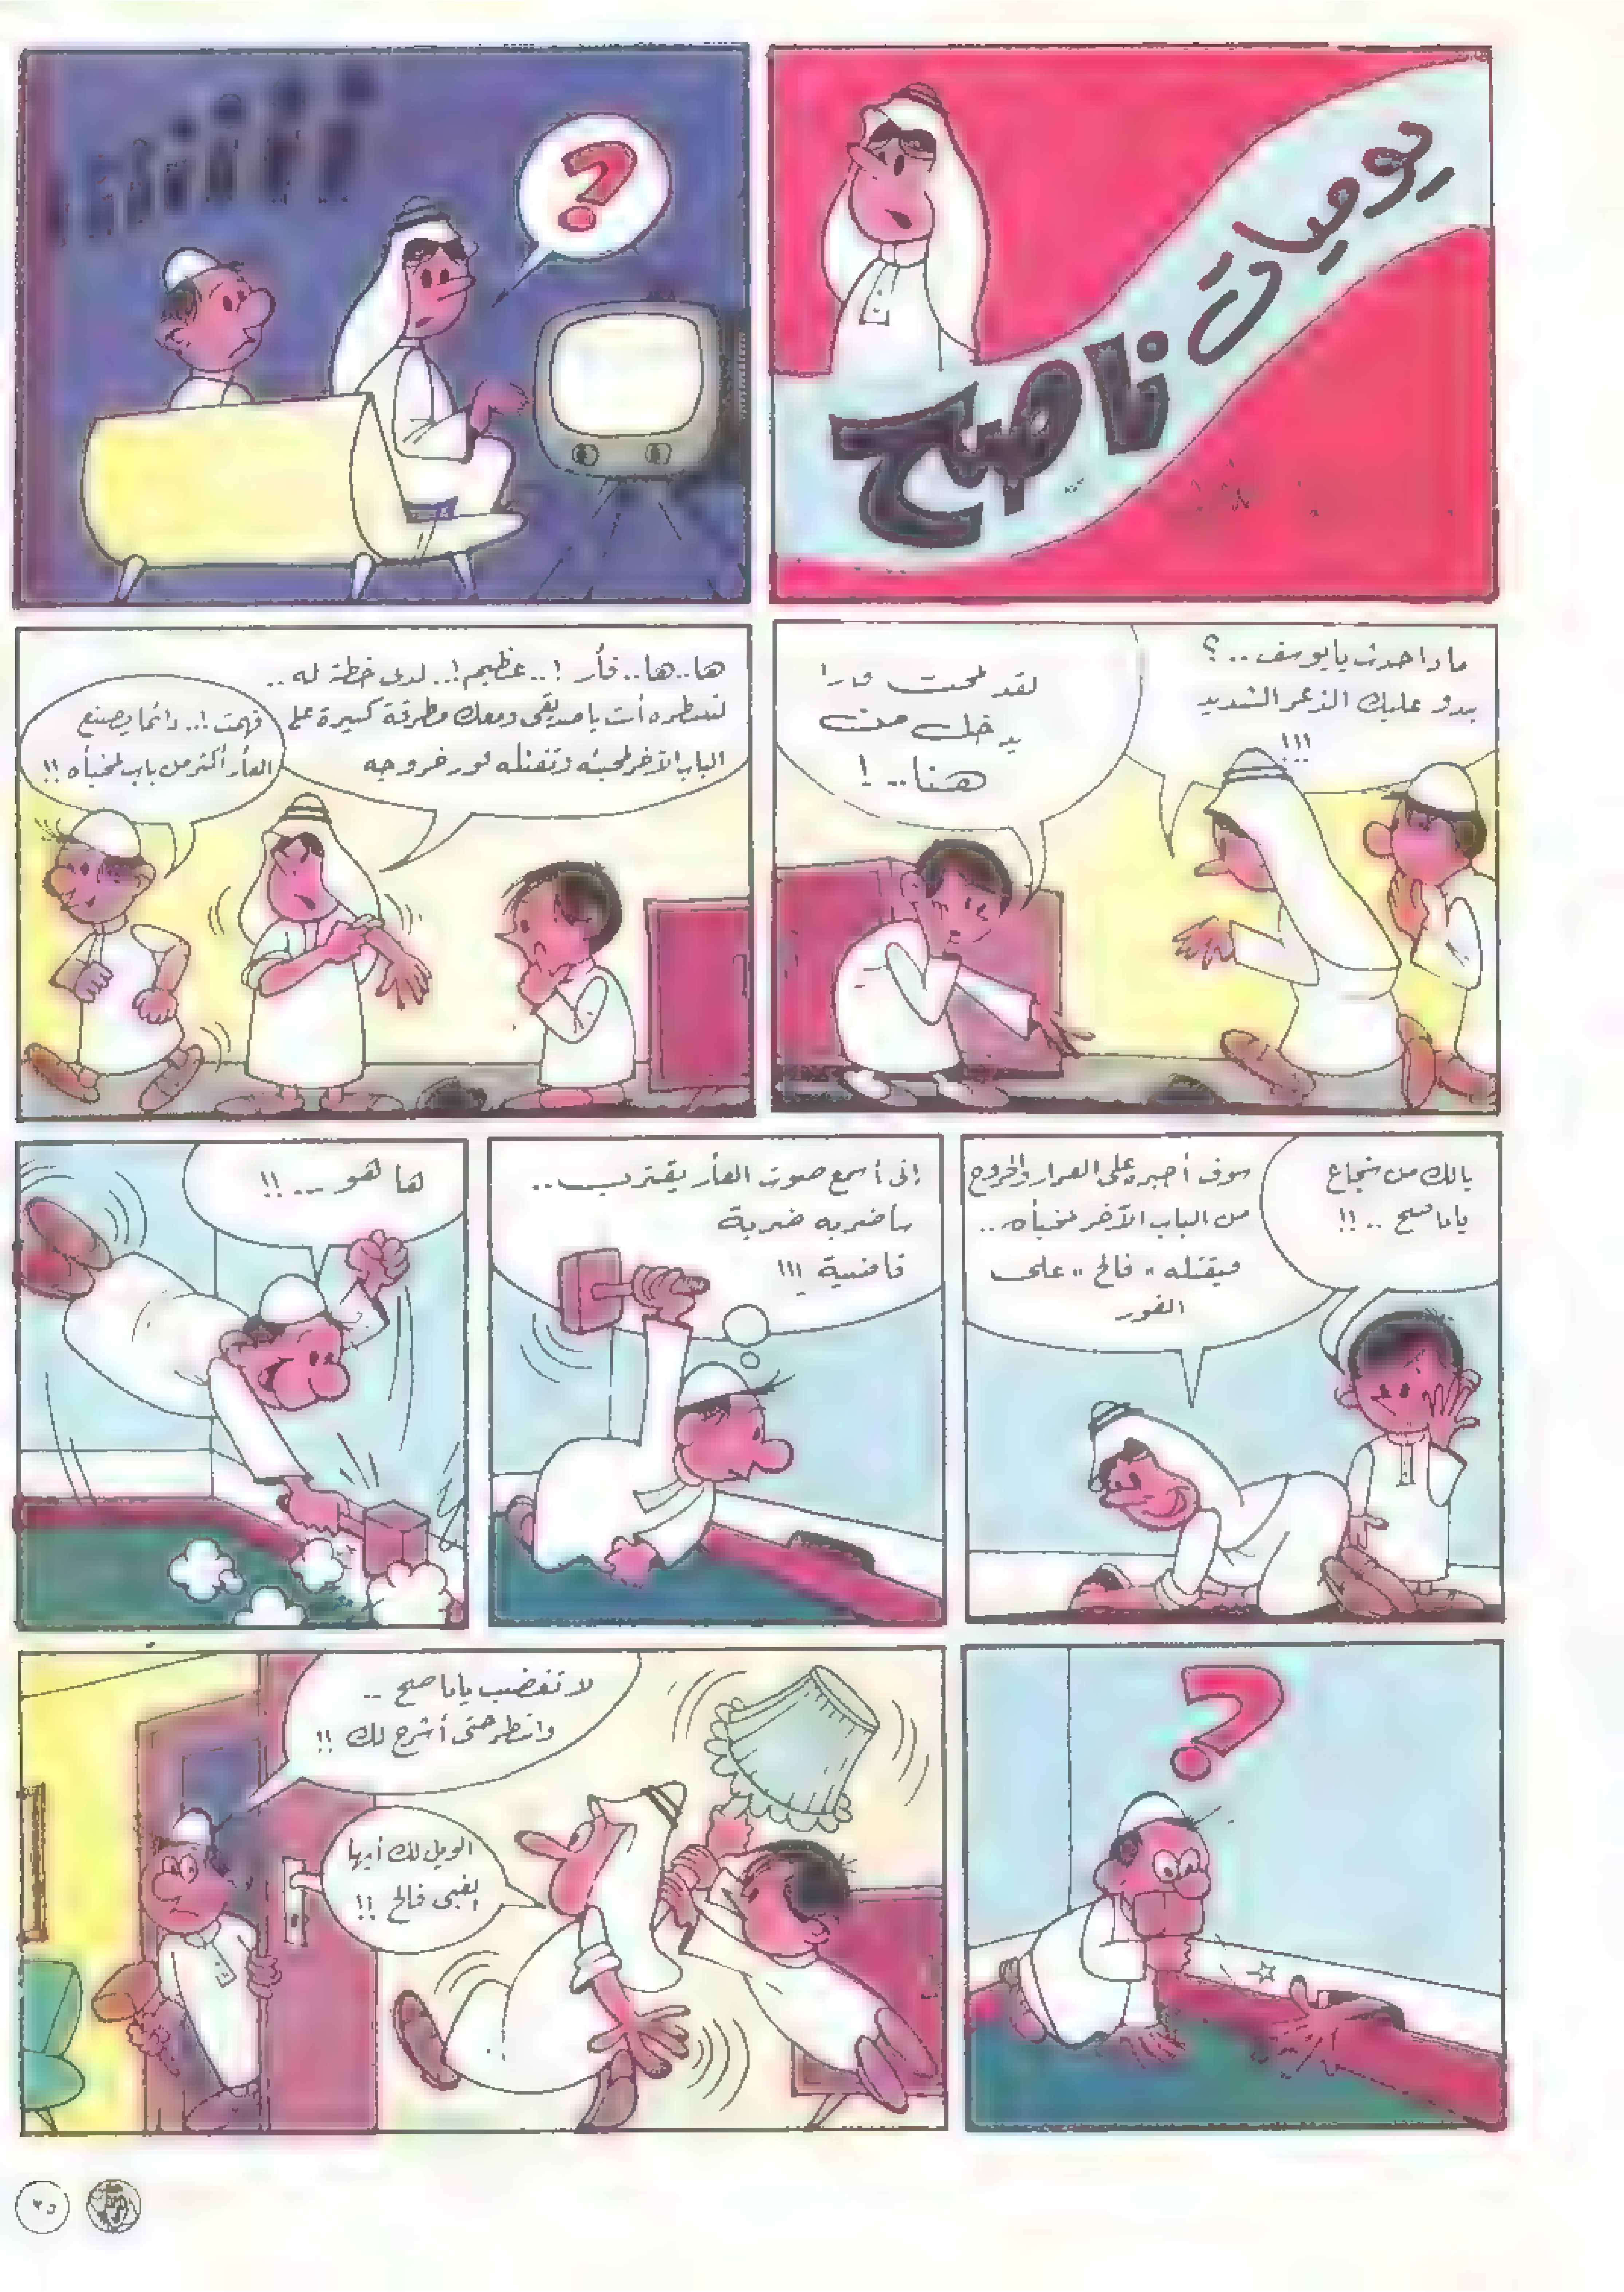 يوميات
ناصح
؟
ماذا حدث يا يوسف..؟
يبدو عليك الذعر الشديد
!!!
لقد لمحت فأرا
يدخل من
هنا..!
ها..ها.. فأر !..عظيم!.. لدى خطة له ..
تنتظره أنت يا صديقى ومعك مطرقة كبيرة على
الباب الآخر لمخبئه وتقتله فور خروجه
فهمت !.. دائما يصنع
الفأر أكثر من باب لمخبأه !!
يالك من شجاع
يا ناصح ..!!
سوف أجبره على الفرار والخروج
من الباب الآخر لمخبأه..
فيقتله "فالح" على
الفور
إنى أسمع صوت الفأر يقترب..
سأضربه ضربة
قاضية !!!
ها هو ...!!
؟
لا تغضب يا ناصح ..
وانتظر حتى أشرح لك !!
الويل لك أيها
الغبى فالح !!